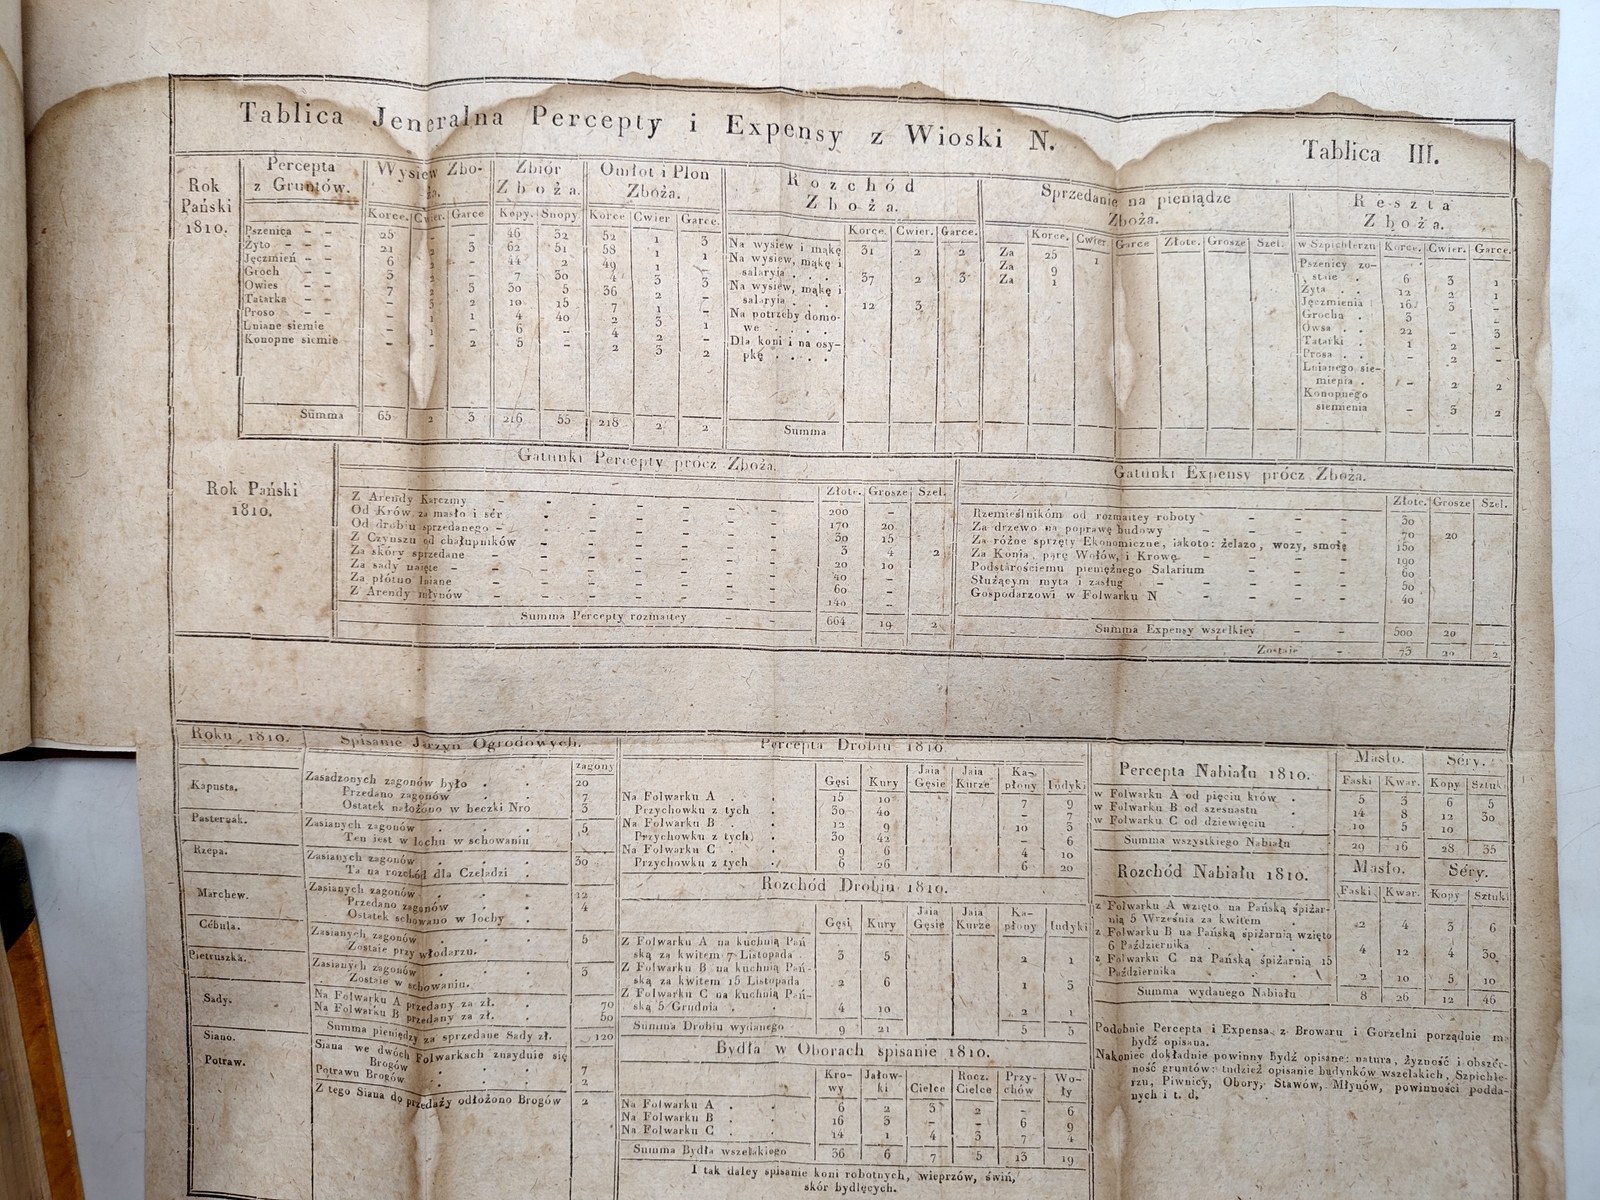 Tablica Jeneralna Percepty i Expensy z Wioski N. Tablica III.
Rok Pański 1810.
Percepta z Gruntów.
Wysiew Zboża.
Zbiór Zboża.
Omłot i Plon Zboża.
Rozchód Zboża.
Sprzedanie na pieniądze Zboża.
Reszta Zboża.
Korce. Cwier. Garce
Kopy. Snopy
Korce Cwier Garce.
Korce. Cwier. Garce.
Korce. Cwier Garce Złote. Grosze Szel.
w Szpichlerzu Korce. Cwier. Garce.
Pszenica
Żyto
Jęczmień
Groch
Owies
Tatarka
Proso
Lniane siemie
Konopne siemie
Na wysiew i mąkę 31 2 2
Na wysiew, mąkę i
salaryia 37 2 3
Na wysiew, mąkę i
salaryia 12 3
Na potrzeby domo-
we
Dla koni i na osy-
pkę
Za 25 1
Za 9
Za 1
Pszenicy zo-
staie 6 3 1
Żyta 12 2 1
Jęczmienia 16 3 -
Grochu 3
Owsa 22 - 3
Tatarki 1 2 -
Prosa - 2 -
Lnianego sie-
mienia - 2 2
Konopnego
siemienia - 3 2
Summa 65 2 3 216 55 218 2 2
Summa
Rok Pański
1810.
Gatunki Percepty prócz Zboża.
Złote. Grosze Szel.
Z Arendy Karczmy 200
Od Krów za masło i sér 170 20
Od drobiu sprzedanego 30 15
Z Czynszu od chałupników 3 4 2
Za skóry sprzedane 20 10
Za sady naięte 40 -
Za płótno lniane 60 -
Z Arendy młynów 140 -
Summa Percepty rozmaitey 664 19 2
Gatunki Expensy prócz Zboża.
Złote. Grosze Szel.
Rzemieślnikóm od rozmaitey roboty 30
Za drzewo na poprawę budowy 70 20
Za różne sprzęty Ekonomiczne, iakoto: żelazo, wozy, smołę 150
Za Konia, parę Wołów, i Krowę 100
Podstarościemu pieniężnego Salarium 60
Służącym myta i zasług 50
Gospodarzowi w Folwarku N 40
Summa Expensy wszelkiey 500 20
Zostaie 73 20 2
Roku 1810. Spisanie Jarzyn Ogrodowych.
zagony
Kapusta. Zasadzonych zagonów było 20
Przedano zagonów 7
Ostatek nałożono w beczki Nro 3
Pasternak. Zasianych zagonów 5
Ten iest w lochu w schowaniu
Rzepa. Zasianych zagonów 30
Ta na rozchód dla Czeladzi
Marchew. Zasianych zagonów 12
Przedano zagonów 4
Ostatek schowano w lochy
Cébula. Zasianych zagonów 5
Zostaie przy włodarzu.
Pietruszka. Zasianych zagonów 3
Zostaie w schowaniu.
Sady. Na Folwarku A przedany za zł. 70
Na Folwarku B przedany za zł. 50
Summa pieniędzy za sprzedane Sady zł. 120
Siano. Siana we dwóch Folwarkach znayduie się
Brogów 7
Potraw. Potrawu Brogów 2
Z tego Siana do przedaży odłożono Brogów 2
Percepta Drobiu 1810.
Gęsi Kury Jaia Gęsie Jaia Kurze Ka-płony Indyki
Na Folwarku A 15 10 7 9
Przychowku z tych 30 40 - 7
Na Folwarku B 12 9 10 3
Przychowku z tych 30 42 - 6
Na Folwarku C 9 6 4 10
Przychowku z tych 6 26 6 20
Rozchód Drobiu 1810.
Gęsi Kury Jaia Gęsie Jaia Kurze Ka-płony Indyki
Z Folwarku A na kuchnią Pań
ską za kwitem 7 Listopada 3 5 2 1
Z Folwarku B na kuchnią Pań-
ską za kwitem 15 Listopada 2 6 1 3
Z Folwarku C na kuchnią Pań-
ską 5 Grudnia 4 10 2 1
Summa Drobiu wydanego 9 21 5 5
Bydła w Oborach spisanie 1810.
Kro-wy Jałow-ki Cielce Rocz. Cielce Przy-chów Wo-ły
Na Folwarku A 6 2 3 2 - 6
Na Folwarku B 16 3 - - 6 9
Na Folwarku C 14 1 4 3 7 4
Summa Bydła wszelakiego 36 6 7 5 13 19
I tak daley spisanie koni robotnych, wieprzów, świń,
skór bydlęcych.
Percepta Nabiału 1810. Masło. Séry.
Faski Kwar. Kopy Sztuki
w Folwarku A od pięciu krów 5 3 6 5
w Folwarku B od szesnastu 14 8 12 30
w Folwarku C od dziewięciu 10 5 10
Summa wszystkiego Nabiału 29 16 28 35
Rozchód Nabiału 1810. Masło. Séry.
Faski Kwar. Kopy Sztuki
z Folwarku A wzięto na Pańską śpiżar-
nią 5 Września za kwitem 2 4 3 6
z Folwarku B na Pańską śpiżarnią wzięto
6 Października 4 12 4 30
z Folwarku C na Pańską śpiżarnią 15
Października 2 10 5 10
Summa wydanego Nabiału 8 26 12 46
Podobnie Percepta i Expensa z Browaru i Gorzelni porządnie ma
bydź opisana.
Nakoniec dokładnie powinny Bydź opisane: natura, żyzność i obszér-
ność gruntów: tudzież opisanie budynków wszelakich, Szpichle-
rzu, Piwnicy, Obory, Stawów, Młynów, powinności podda-
nych i t. d.